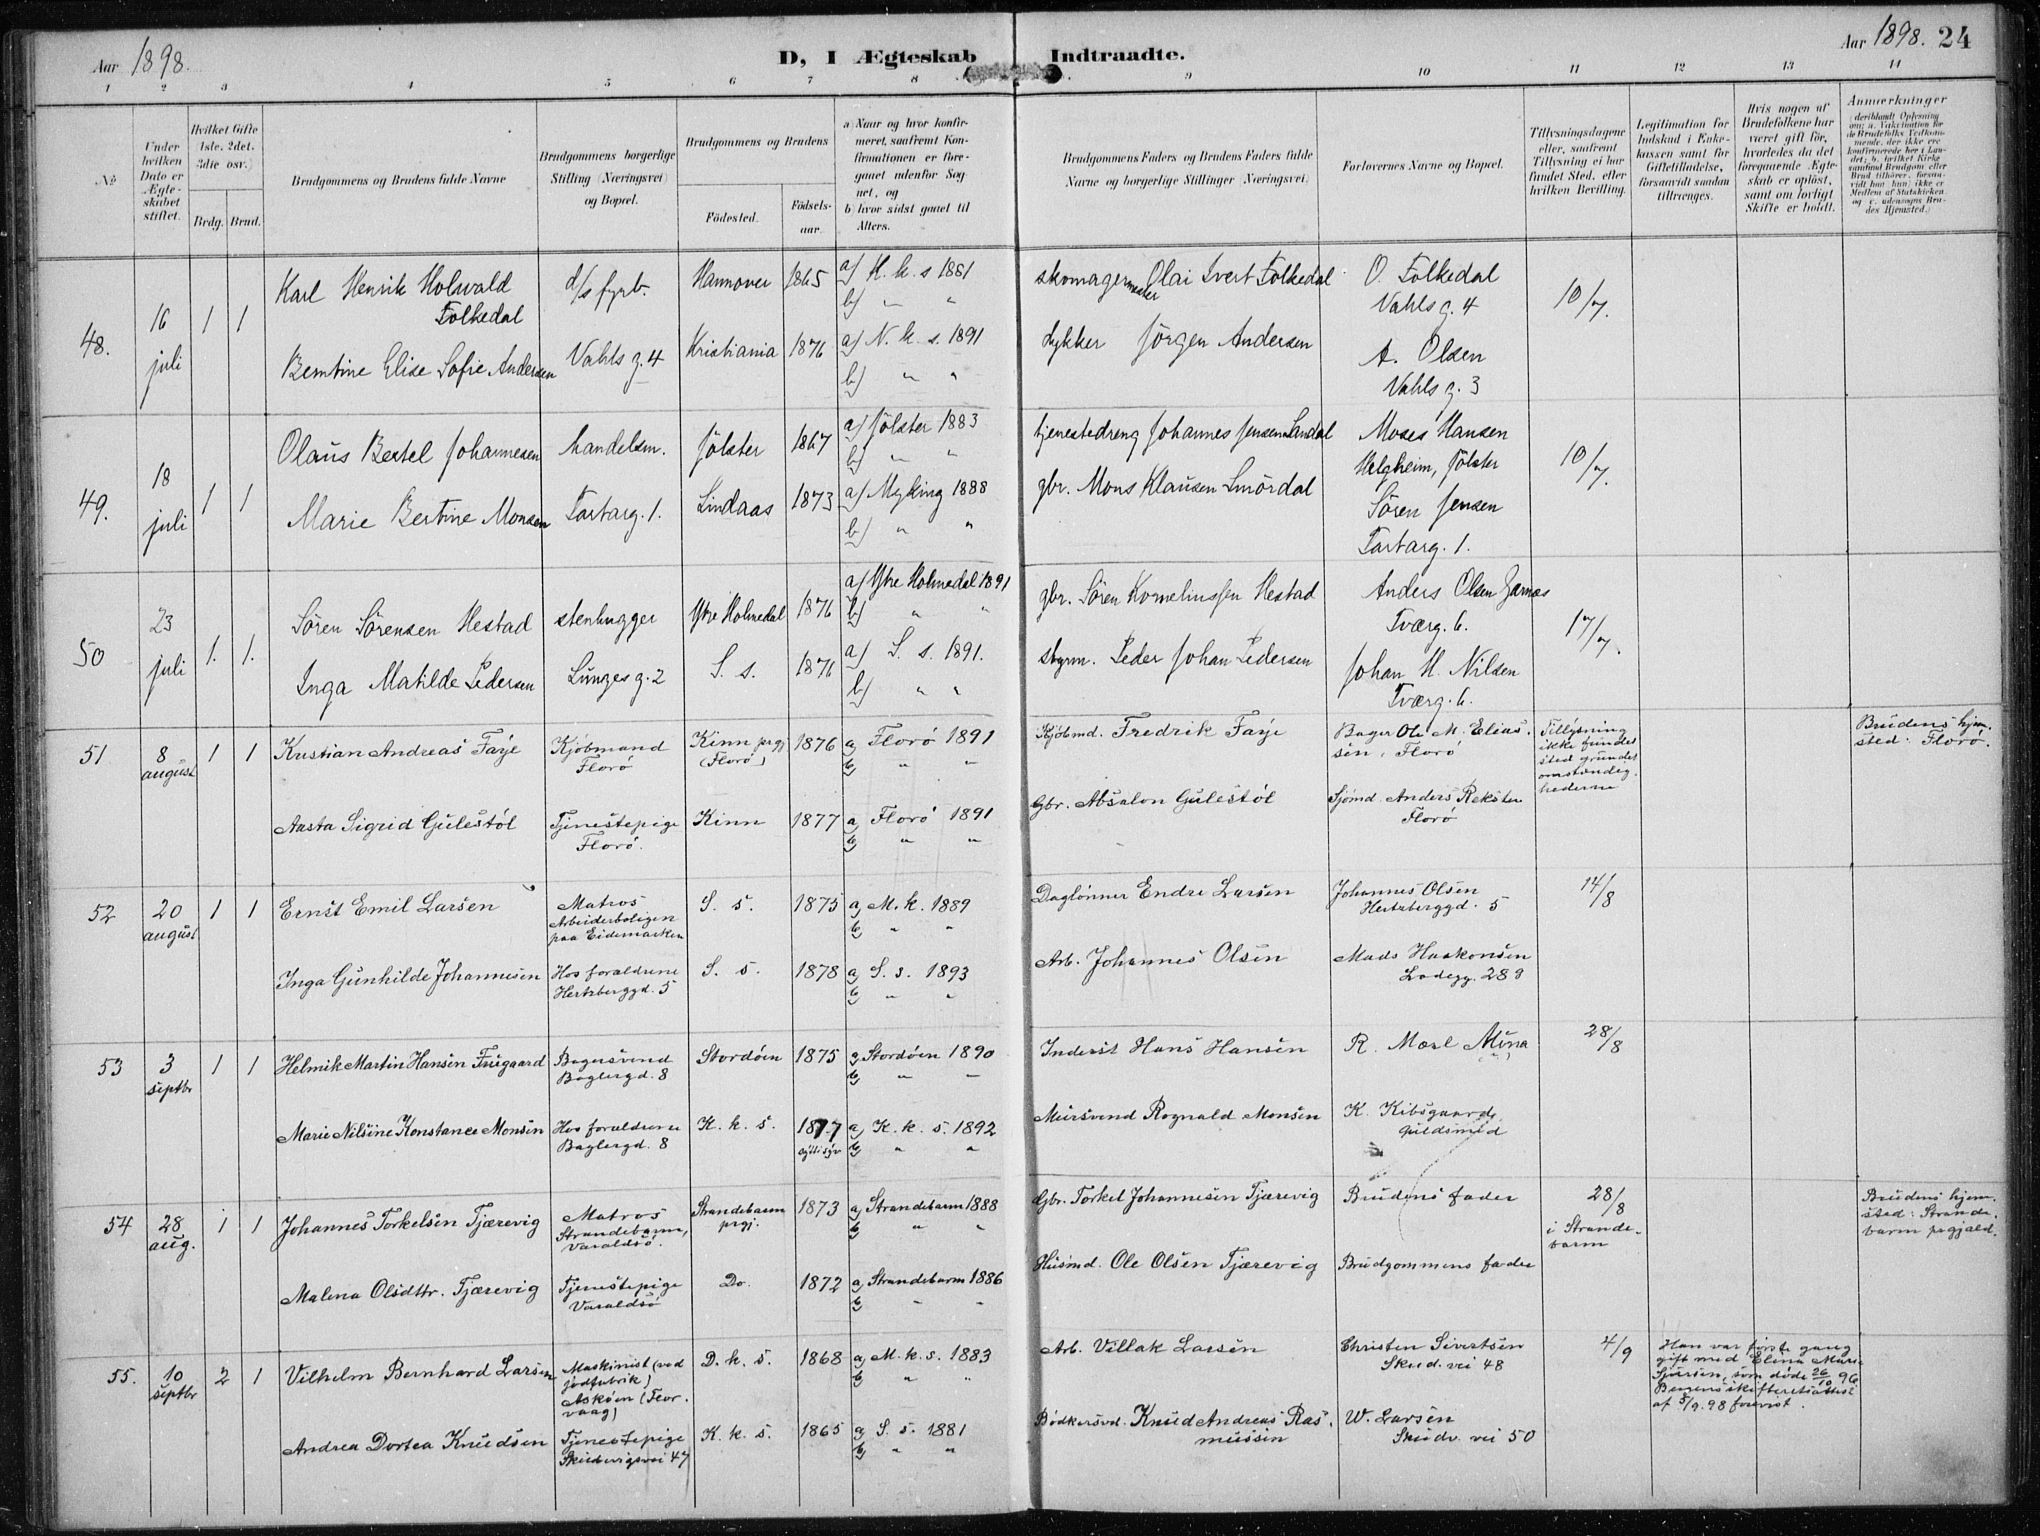 Aar 1898.
D, I Ægteskab Indtraadte.
Aar 1898. 24
1 2 3 4 5 6 7 8 9 10 11 12 13 14
No.
Under hvilken Dato er Ægteskabet stiftet.
Hvilket Gifte (1ste, 2det, 3die osv.)
Brdg. Brud.
Brudgommens og Brudens fulde Navne
Brudgommens borgerlige Stilling (Næringsvei) og Bopæl.
Brudgommens og Brudens
Födested.
Födsels-aar.
a) Naar og hvor konfirmeret, saafremt Konfirmationen er foregaaet udenfor Sognet, og
b) hvor sidst gaaet til Alters.
Brudgommens Faders og Brudens Faders fulde Navne og borgerlige Stillinger (Næringsvei)
Forlovernes Navne og Bopæl.
Tillysningsdagene eller, saafremt Tillysning ei har fundet Sted, efter hvilken Bevilling.
Legitimation for Indskud i Enkekassen samt for Giftetilladelse, forsaavidt saadan tiltrænges.
Hvis nogen af Brudefolkene har været gift för, hvorledes da det foregaaende Ægteskab er oplöst, samt om lovligt Skifte er holdt.
Anmærkninger (deriblandt Oplysning om: a. Vakcination for de Brudefolks Vedkommende, der ikke ere konfirmerede her i Landet; b. hvilket Kirkesamfund Brudgom eller Brud tilhörer, forsaavidt han (hun) ikke er Medlem af Statskirken, og c. udensogns Brudes Hjemsted.)
48. 16 juli 1 1
Karl Henrik Holwald Folkedal
d/s fyrb.
Hannover 1865
a) H. k. s 1881
b) " "
skomagermester Olai Ivert Folkedal
O. Folkedal
Vahls g. 4
10/7.
Berntine Elise Sofie Andersen
Vahls g. 4
Kristiania 1876
a) N. k. s. 1891
b) " "
dykker Jörgen Andersen
A. Olsen
Vahls g. 3
49. 18 juli 1 1
Olaus Bertel Johannesen
handelsm.
Jölster 1867
a) Jölster 1883
b) " "
tjenestedreng Johannes Jensen Sandal
Moses Hansen
Helgheim, Jölster
10/7.
Marie Bertine Monsen
Tartarg. 1.
Lindaas 1873
a) Myking 1888
b) " "
gbr. Mons Klausen Smördal
Sören Jensen
Tartarg. 1.
50 23 juli 1. 1.
Sören Sörensen Hestad
stenhugger
Ytre Holmedal 1876
a) Ytre Holmedal 1891
b) " "
gbr. Sören Kornelinssen Hestad
Anders Olsen Garnæs
Tværg. 6.
17/7.
Inga Matilde Pedersen
Lungesg. 2
S. s. 1876
a) S. s. 1891.
b) " "
styrm. Peder Johan Pedersen
Johan H. Nilsen
Tværg. 6.
51 8 august 1 1
Kristian Andreas Faye
Kjöbmand
Florö
Kinn prgj
(Florö) 1876
a) Florö 1891
b) " "
Kjöbmd. Fredrik Faye
Bager Ole M. Elias-
sen, Florö
Tillysning
ikke fundet
sted grundet
omstændig-
hederne
Brudens hjem-
sted: Florö.
Aasta Sigrid Gulestöl
Tjenestepige
Florö.
Kinn 1877
a) Florö 1891
b) " "
Gbr. Absalon Gulestöl
Sjömd. Anders Reksten
Florö
52 20 august 1 1
Ernst Emil Larsen
Matros
Arbeiderboligen
paa Eidemarken
S. s. 1875
a) M. k. 1889
b) " "
Daglönner Endre Larsen
Johannes Olsen
Hertzberggd. 5
14/8
Inga Gunhilde Johannesen
Hos forældrene
Hertzberggd. 5
S. s. 1878
a) S. s. 1893
b) " "
Arb. Johannes Olsen
Mads Haakonsen
Ladegg. 28
53 3 septbr 1 1
Helmik Martin Hansen Frugaard
Bagersvend
Baglergd. 8
Stordöen 1875
a) Stordöen 1890
b) " "
Inderst Hans Hansen
28/8
Marie Nilsine Konstance Monsen
Hos forældrene
Baglergd. 8
K. k. s. 1877
a) K. k. s. 1892
b) " "
Mursvend Ragnald Monsen
K. Kibsgaard,
guldsmed
54 28 aug. 1 1
Johannes Torkelsen Tjærevig
Matros
Strandebarm,
Varaldsö.
Strandebarm
prgj. 1873
a) Strandebarm 1888
b) " "
Gbr. Torkel Johannesen Tjærevig
Brudens fader
28/8
i Strande-
barm
Brudens hjem-
sted: Strande-
barm prgjæld.
Malena Olsdttr. Tjærevig
Tjenestepige
Varaldsö
Do. 1872
a) Strandebarm 1886
b) " "
Husmd. Ole Olsen Tjærevig
Brudgommens fader
55. 10 septbr 2 1
Vilhelm Bernhard Larsen
Maskinist (ved
jodfabrik)
Askøen (Flor-
vaag)
D. k. s. 1868
a) M. k. s. 1883
b) " "
Arb. Villak Larsen
Christen Sivertsen
Skud. vei 48
4/9
Han var förste gang
gift med Elena Marie
Sjursen, som döde 26/10 96
Bergens skifteretsattest
af 5/9. 98 forevist.
Andrea Dortea Knudsen
Tjenestepige
Skudevigsvei 47
K. k. s. 1865
a) S. s. 1881
b) " "
Bödkersvd. Knud Andreas Ras-
mussen
W. Larsen
Skudv. vei 50